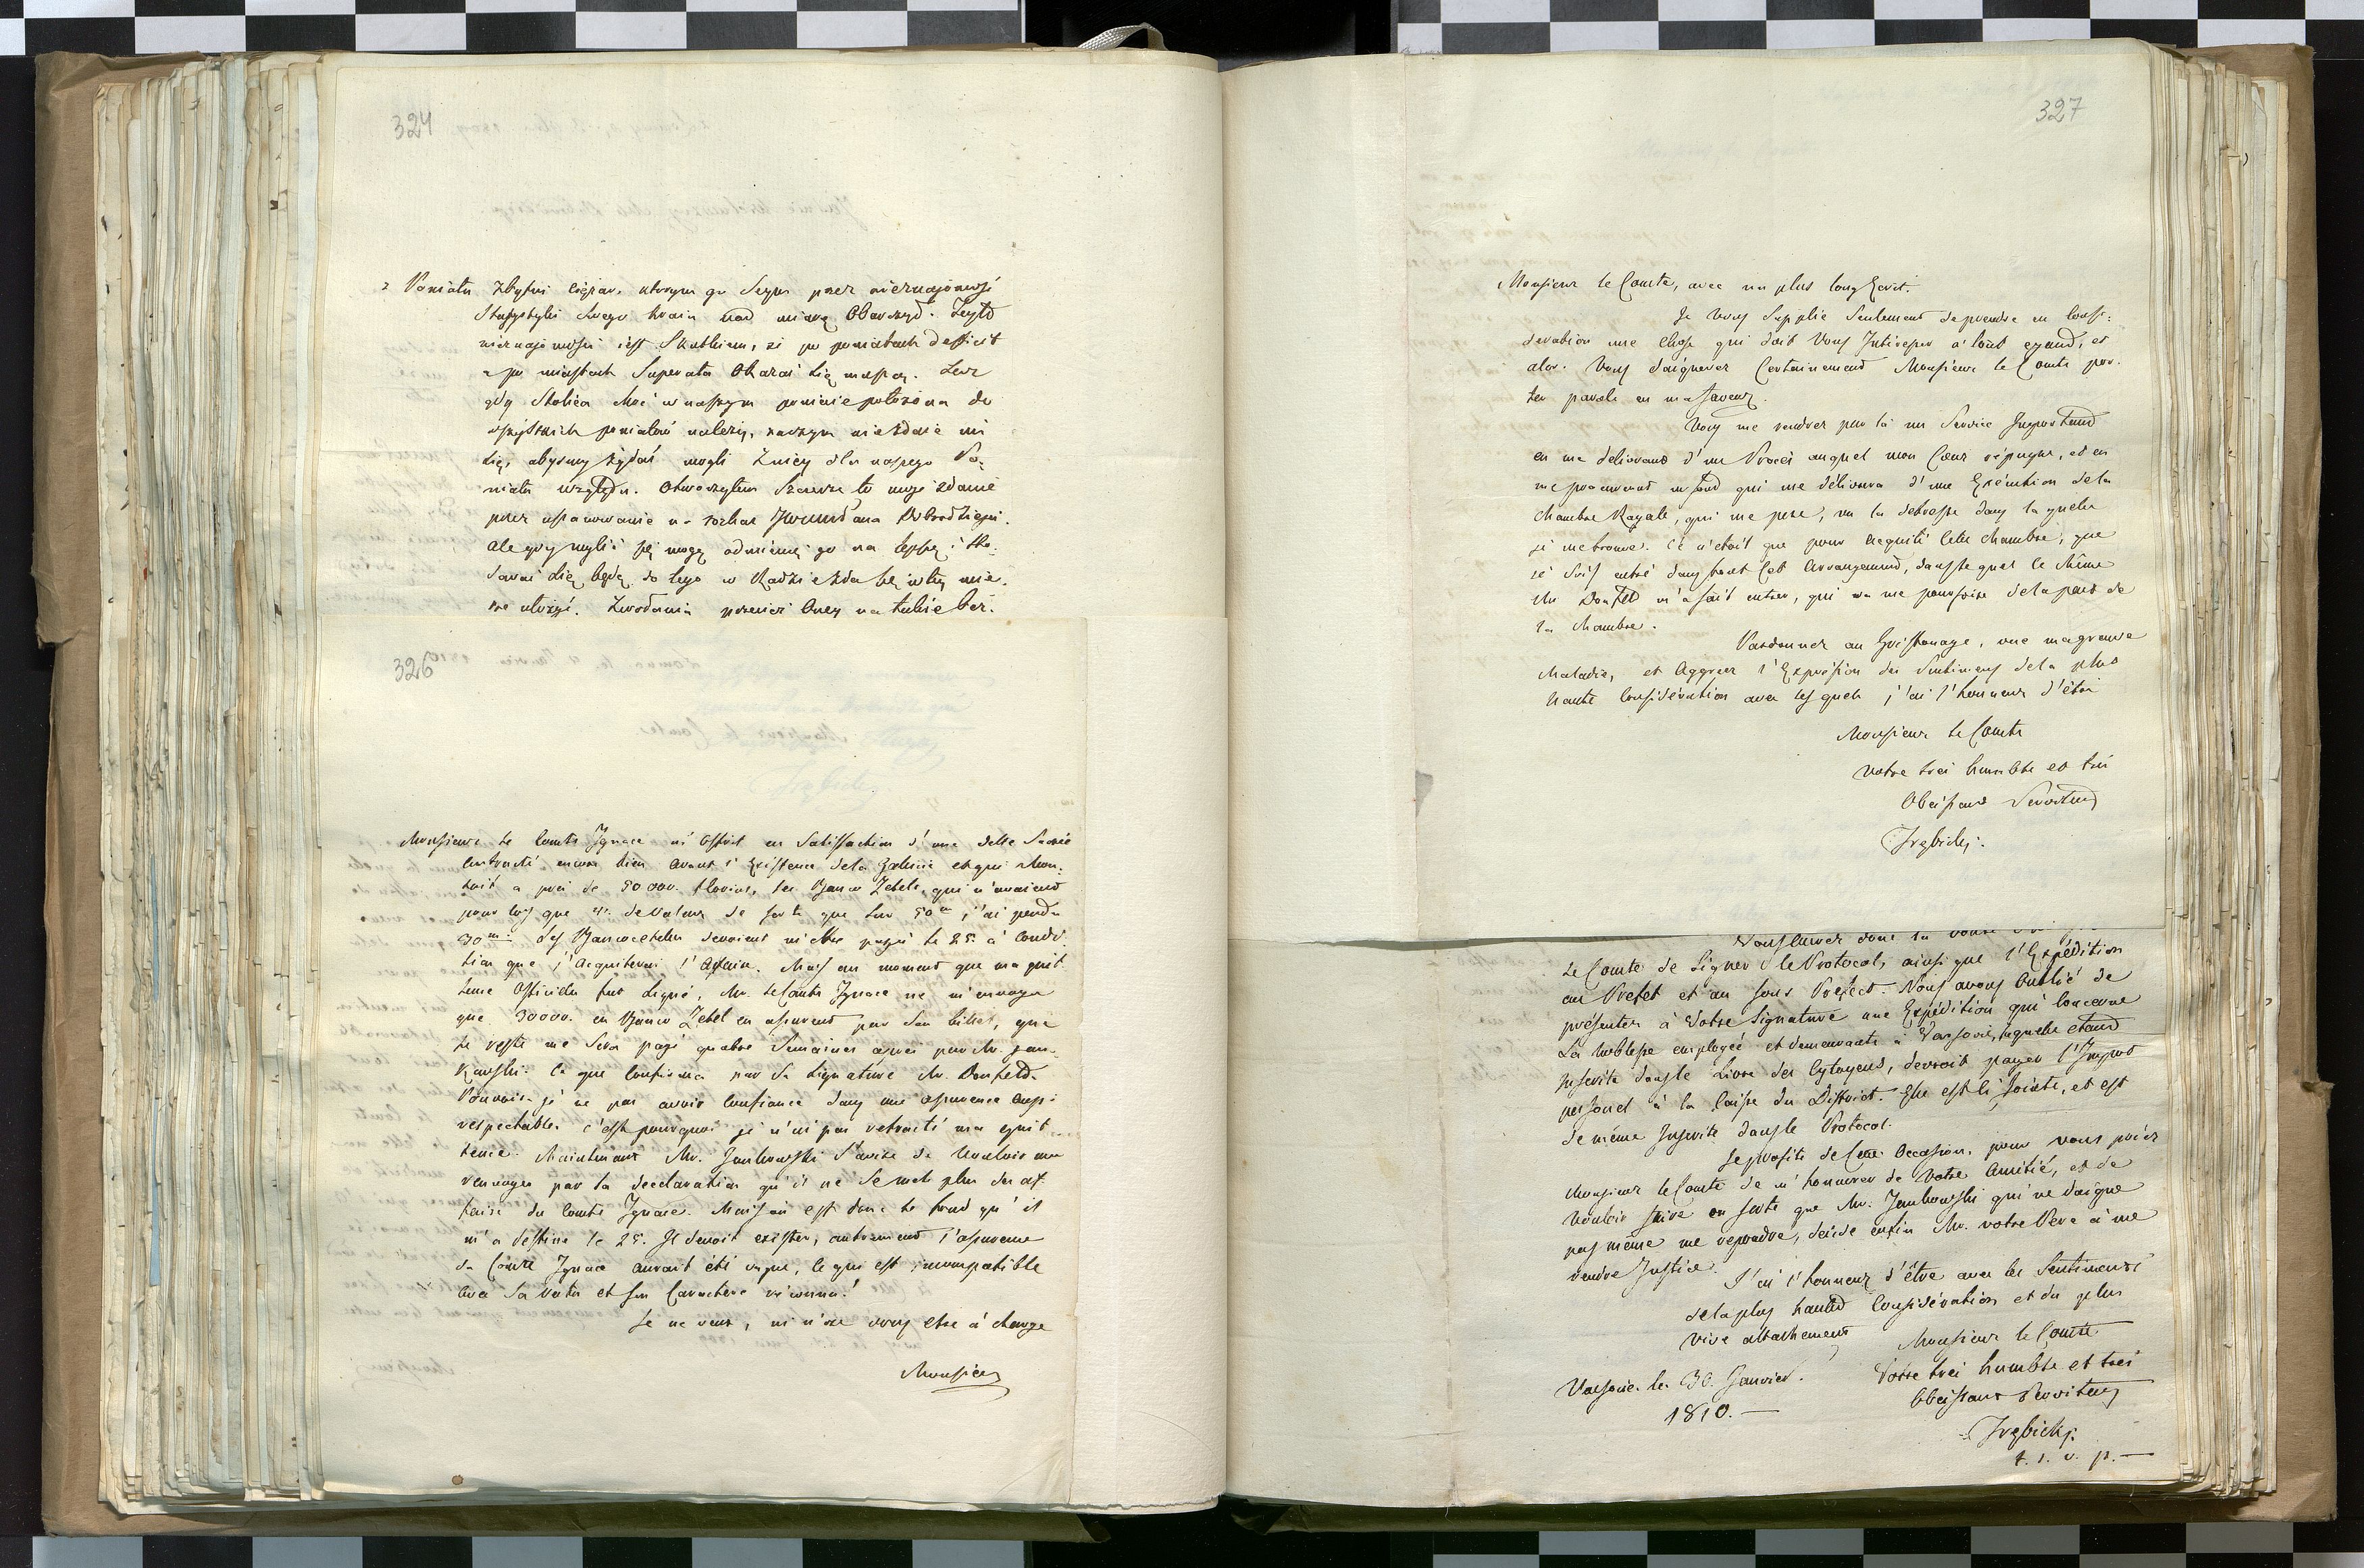 324
z Powiatu zbytni ciężar, którym go Seym przez nieznajomość
Statystyki swego kraiu nad miarę Obarczył. Zeytd
nieznajomości iest Skutkiem, że po powiatach defficit
a po miastach Superata Okazać się muszą. Lecz
gdy Stolica choć w naszym powiecie położona do
wszystkich powiatów należy, zaczym nie zdaie mi
się, abysmy żądać mogli Zniey dla naszego Po-
wiatu względu. Otworzyłem Szczerze to moje zdanie
przez uszanowanie na rozkaz JWWPana Dobrodzieja.
ale gdy mylić się mogę odmienię go na lepsze i sto-
sować się będę do tego w Radzie zda się w tey mie-
rze ułożyć.
326
Monsieur le Comte Ignace m'offrit en Satisfaction d'une dette Sacrée
Contracté encore bien avant l'Existence de la et qui Mon-
toit a près de 50000. florins, des Banco Zetels, qui n'avaient
pour lors que de valeur de sorte que sur 50m j'ai perdu
30m: des Bancozettels devoient m'être payés le 25. à Condi-
tion que j'Acquiterai l'Afaire. Mais au moment que ma quit-
tence Officielle fut signé, Mr. le Comte Ignace ne m'envoya
que 30000. en Banco Zetel en assurent par Son billet, que
le reste me sera payé quatre Semaines après par Mr. Jan-
kowski. Ce que Confirma par Sa Signature Mr. Donfeld.
Pouvois-je ne pas avoir Confiance dans une assurence aussi
respectable. C'est pourquoi je n'ai pas retracté ma quit-
tence. Maintenant Mr. Jankowski s'avise de Vouloir me
renvoyer par la déclaration qu'il ne se mele plus des af-
faires du Comte Ignace. Mais où est donc le fond qu'il
m'a destiné le 25. Il devoit exister, autrement l'assurence
du Comte Ignace auroit été vague, ce qui est incompatible
avec Sa Vertu et Son Caractère reconnu!
Je ne veux, ni n'ose vous être à charge
Monsieur
327
Monsieur le Comte, avec un plus long Ecrit.
Je Vous Supplie Seulement de prendre en Consi-
deration une chose qui doit Vous Intéresser à tout egard, et
alors Vous daignerez Certainement Monsieur le Comte por-
ter parole en ma faveur.
Vous me rendrez par là un Service Important
en me delivrant d'un Procès auquel mon Cœur répugne, et en
me procurant un fond qui me délivrera d'une Exécution de la
Chambre Royale, qui me pese, vu la detresse dans laquelle
je me trouve. Ce n'étoit que pour Acquité cette Chambre, que
je suis entré dans tout Cet Arrangement, dans le quel le Même
Mr Donfeld m'a fait entrer, qui va me poursuivre de la part de
la Chambre.
Pardonnez au Grifonage, vue ma grave
Maladie, et Aggréez l'Expression des Sentimens de la plus
haute Considération avec lesquels j'ai l'honneur d'être
Monsieur le Comte
Votre très humble et très
Obéissant Serviteur
Trębicki.
Vous aurez donc la bonté
le Comte de Signer le Protocol, ainsi que l'Expédition
au Prefet et au Sous Prefect. Nous avons Oublié de
présenter à Votre Signature une Expédition qui Concerne
La Noblesse employée et demeurante à Varsovie, laquelle etant
Inscrite dans le Livre des Cytoyens, devroit payer l'Impot
personel à la Caisse du District. Elle est ci jointe, et est
de même Inscrite dans le Protocol.
Je profite de Cette Occasion, pour vous prier
Monsieur le Comte de m'honnorer de Votre Amitié, et de
Vouloir faire en sorte que Mr. Jankowski qui ne daigne
pas même me repondre, décide enfin Mr. votre Pere à me
rendre Justice.
J'ai l'honneur d'être avec les Sentimens
de la plus haute Considération et du plus
vive attachement
Monsieur le Comte
Votre très humble et très
Obéissant Serviteur
Varsovie le 30. Janvier.
1810.
Trębicki.
t. s. v. p.